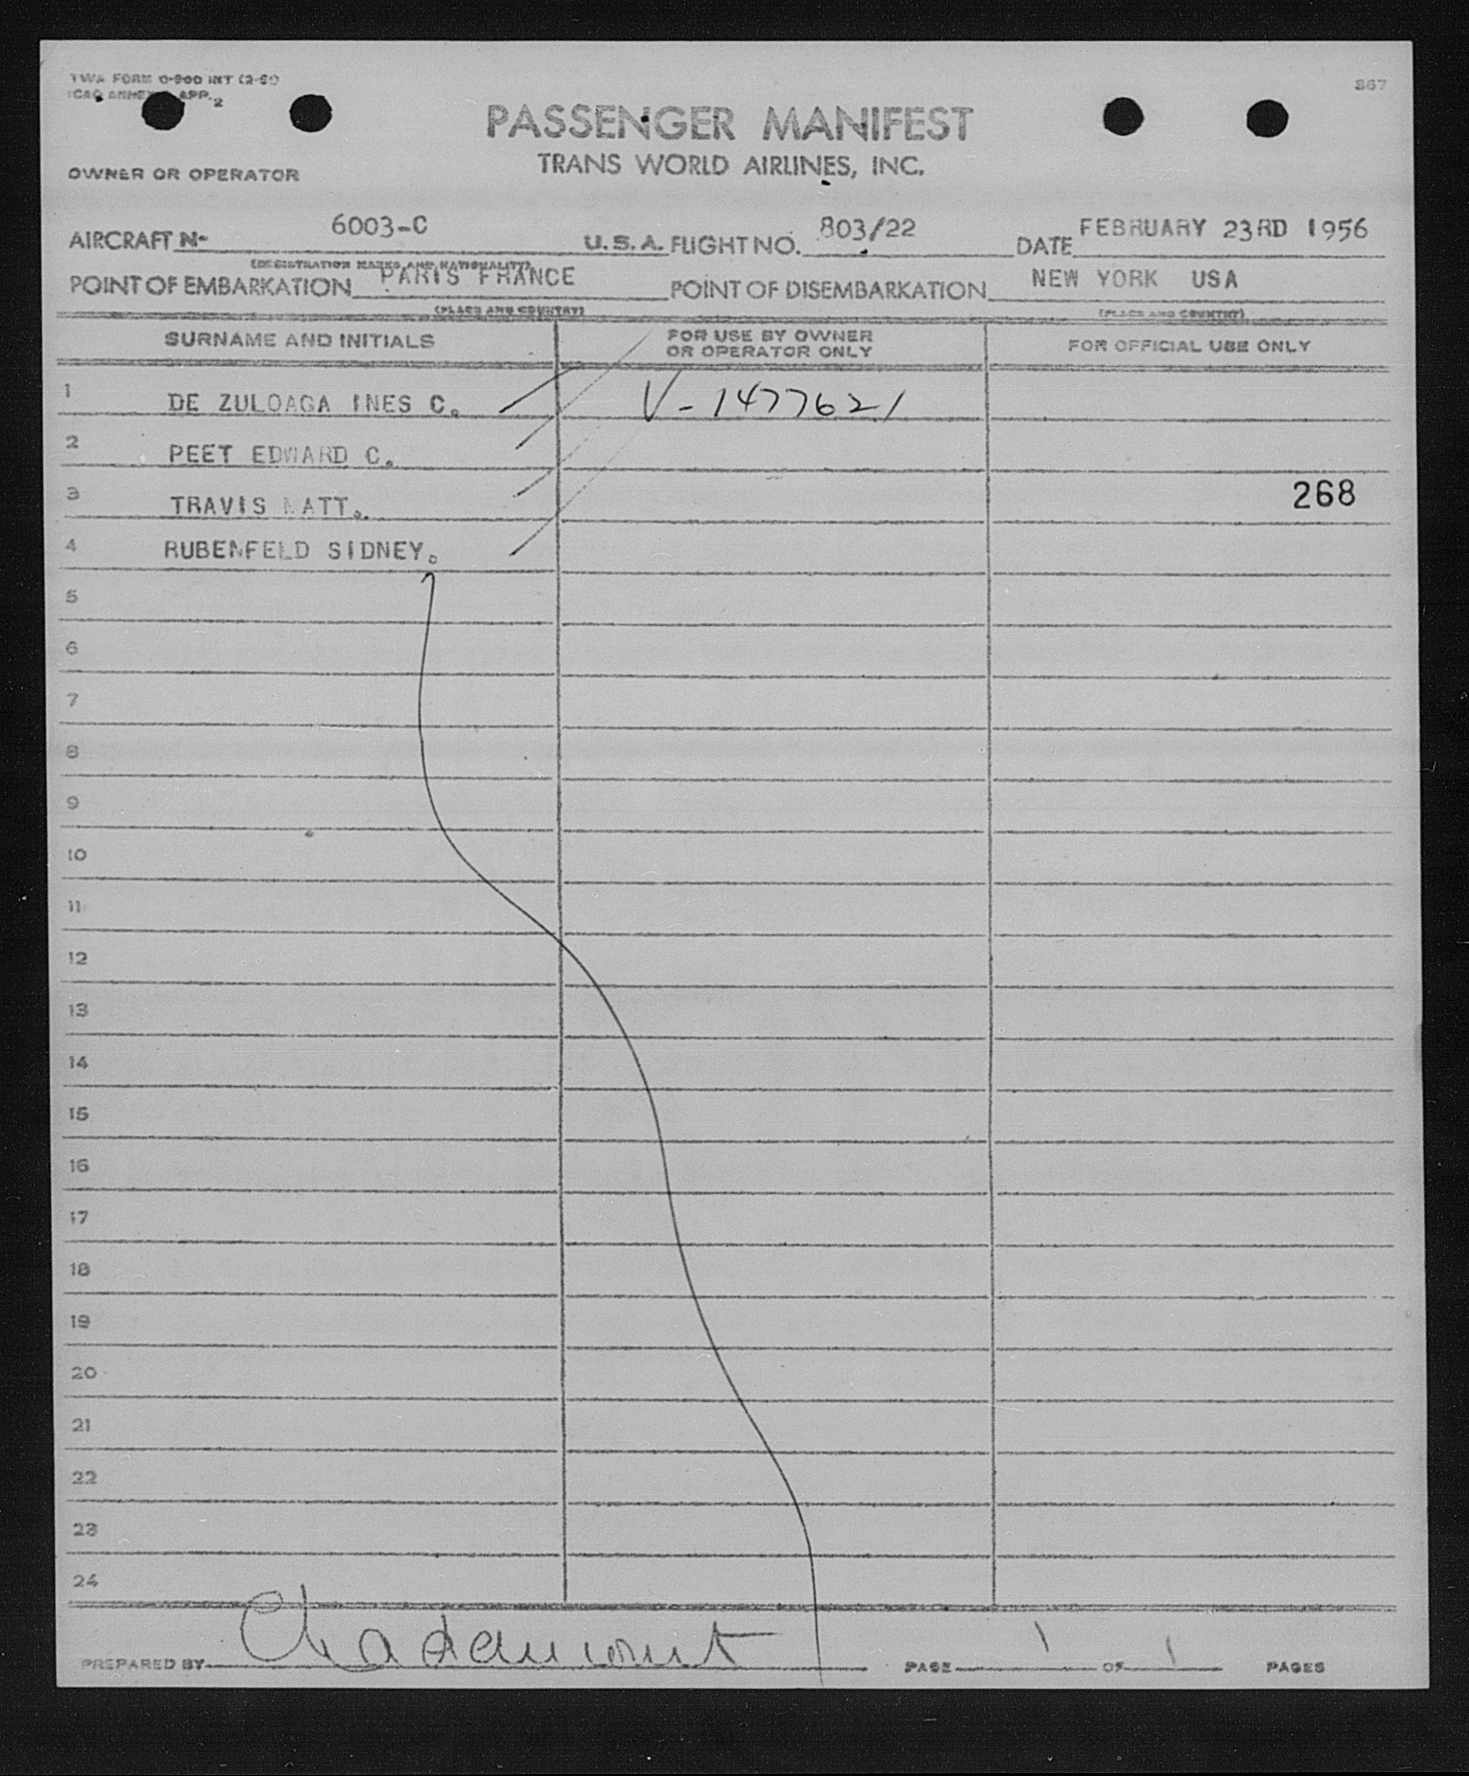 TWA FORM O-900 INT (2-5
ICAO ANNEX APP. 2
867
PASSENGER MANIFEST
TRANS WORLD AIRLINES, INC.
OWNER OR OPERATOR
AIRCRAFT N- 6003-C U.S.A. FLIGHT NO. 803/22 DATE FEBRUARY 23RD 1956
(REGISTRATION MARKS AND NATIONALITY)
POINT OF EMBARKATION PARIS FRANCE POINT OF DISEMBARKATION NEW YORK USA
(PLACE AND COUNTRY) (PLACE AND COUNTRY)
SURNAME AND INITIALS FOR USE BY OWNER OR OPERATOR ONLY FOR OFFICIAL USE ONLY
1 DE ZULOAGA INES C. V-1477621
2 PEET EDWARD C.
3 TRAVIS MATT. 268
4 RUBENFELD SIDNEY.
5
6
7
8
9
10
11
12
13
14
15
16
17
18
19
20
21
22
23
24
PREPARED BY PAGE 1 OF 1 PAGES